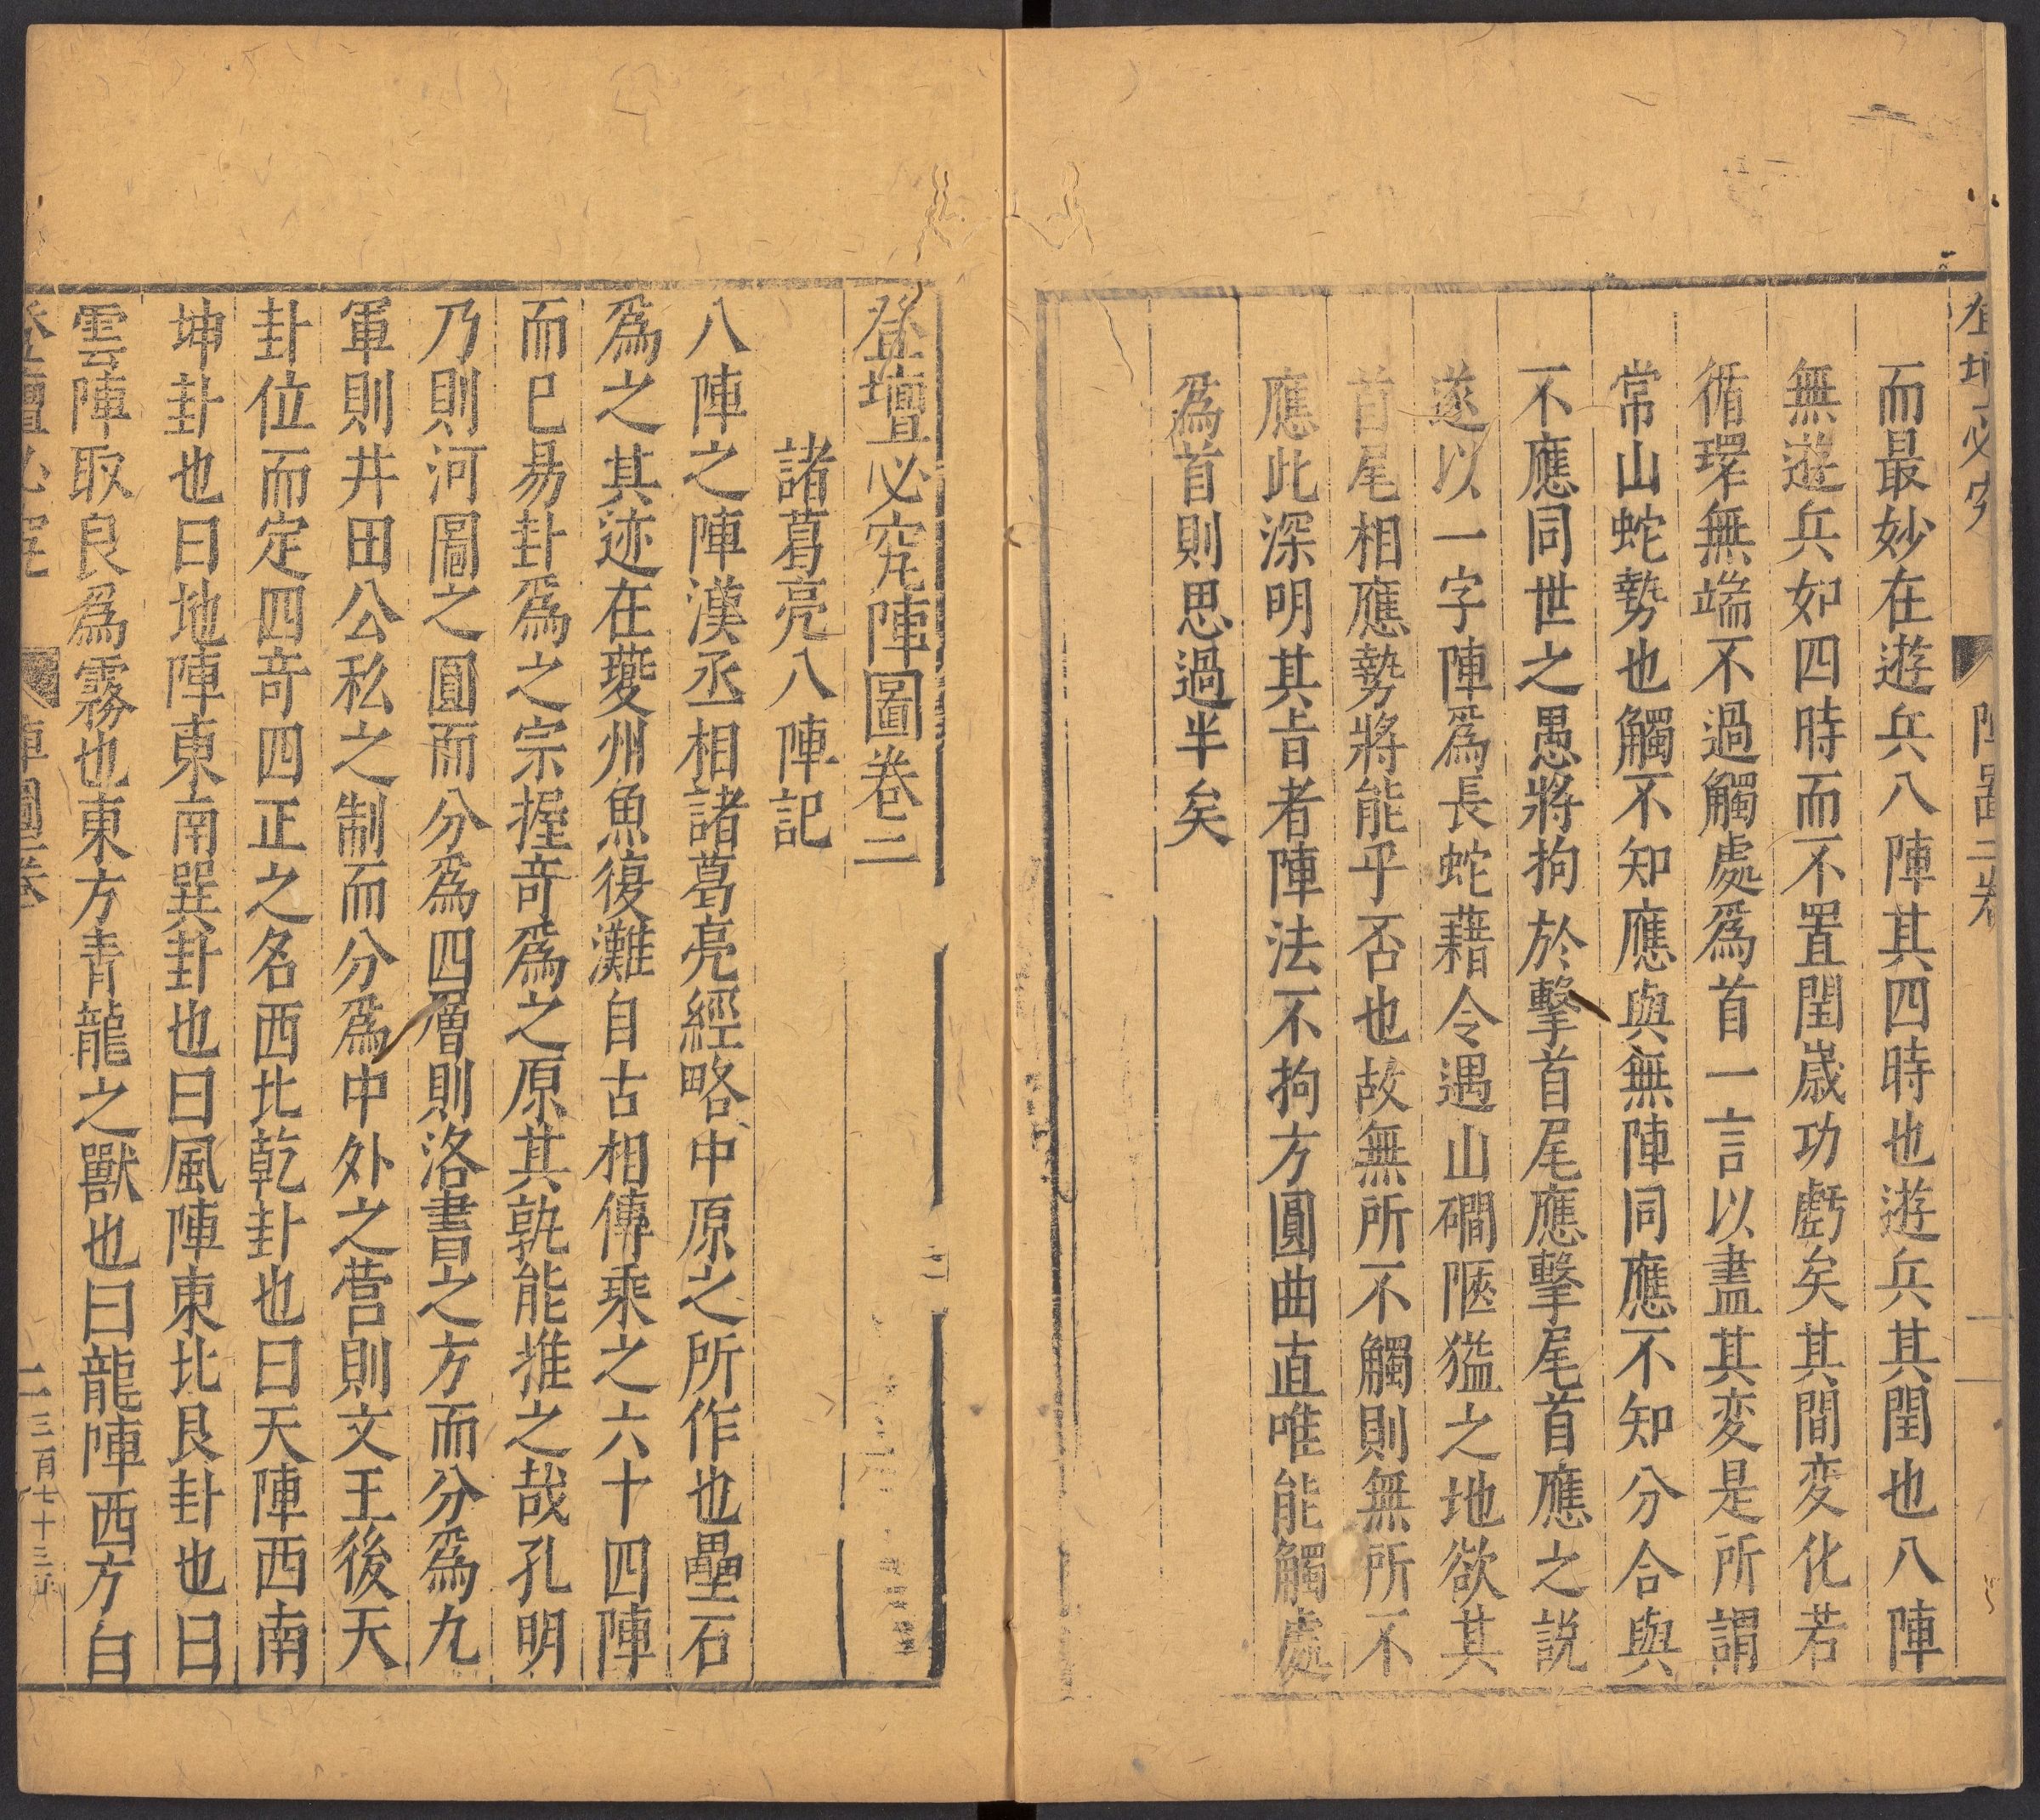 陣圖二卷
而最妙在遊兵八陣其四時也遊兵其閏也八陣
無遊兵如四時而不置閏歲功虧矣其間変化若
循環無端不過觸處爲首一言以盡其変是所謂
常山蛇勢也觸不知應與無陣同應不知分合與
不應同世之愚將拘於擊首尾應擊尾首應之說
遂以一字陣爲長蛇藉令遇山磵陿猛之地欲其
首尾相應勢將能乎否也故無所不觸則無所不
應此深明其㫖者陣法不拘方圓曲直唯能觸處
爲首則思過半矣
登壇必究陣圖卷二
諸葛亮八陣記
八陣之陣漢丞相諸葛亮經略中原之所作也壘石
爲之其迹在夔州魚復灘自古相傳乘之六十四陣
而已易卦爲之宗握竒爲之原其孰能推之哉孔明
乃則河圖之圓而分爲四層則洛書之方而分爲九
軍則井田公私之制而分爲中外之營則文王後天
卦位而定四竒四正之名西北乾卦也曰天陣西南
坤卦也曰地陣東南巽卦也曰風陣東北艮卦也曰
雲陣取艮爲霧也東方青龍之獸也曰龍陣西方白
登壇必究 陣圖二卷 二 三百七十三